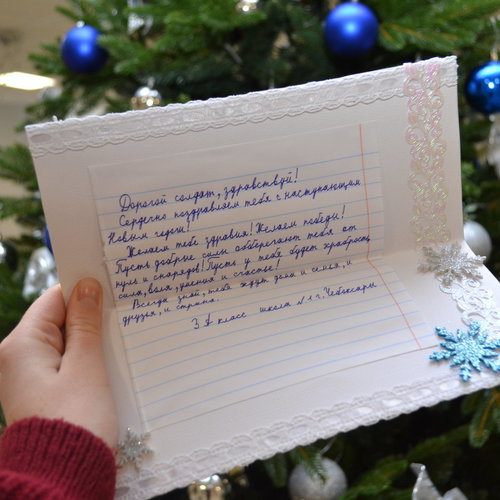 Дорогой солдат, здравствуй!
Сердечно поздравляем тебя с наступающим
Новым годом!
Желаем тебе здравия! Желаем победы!
Пусть добрые силы обберегают тебя от
пуль и снарядов! Пусть у тебя будет храбрость,
сила, воля, умения и счастье!
Всегда знай, тебя ждут дома и семья, и
друзья, и страна.
3 А класс школа № г. Чебоксары